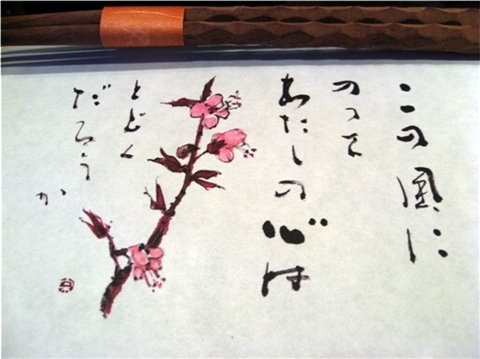 この風に
のって
あたしの心は
とどく
だろうか